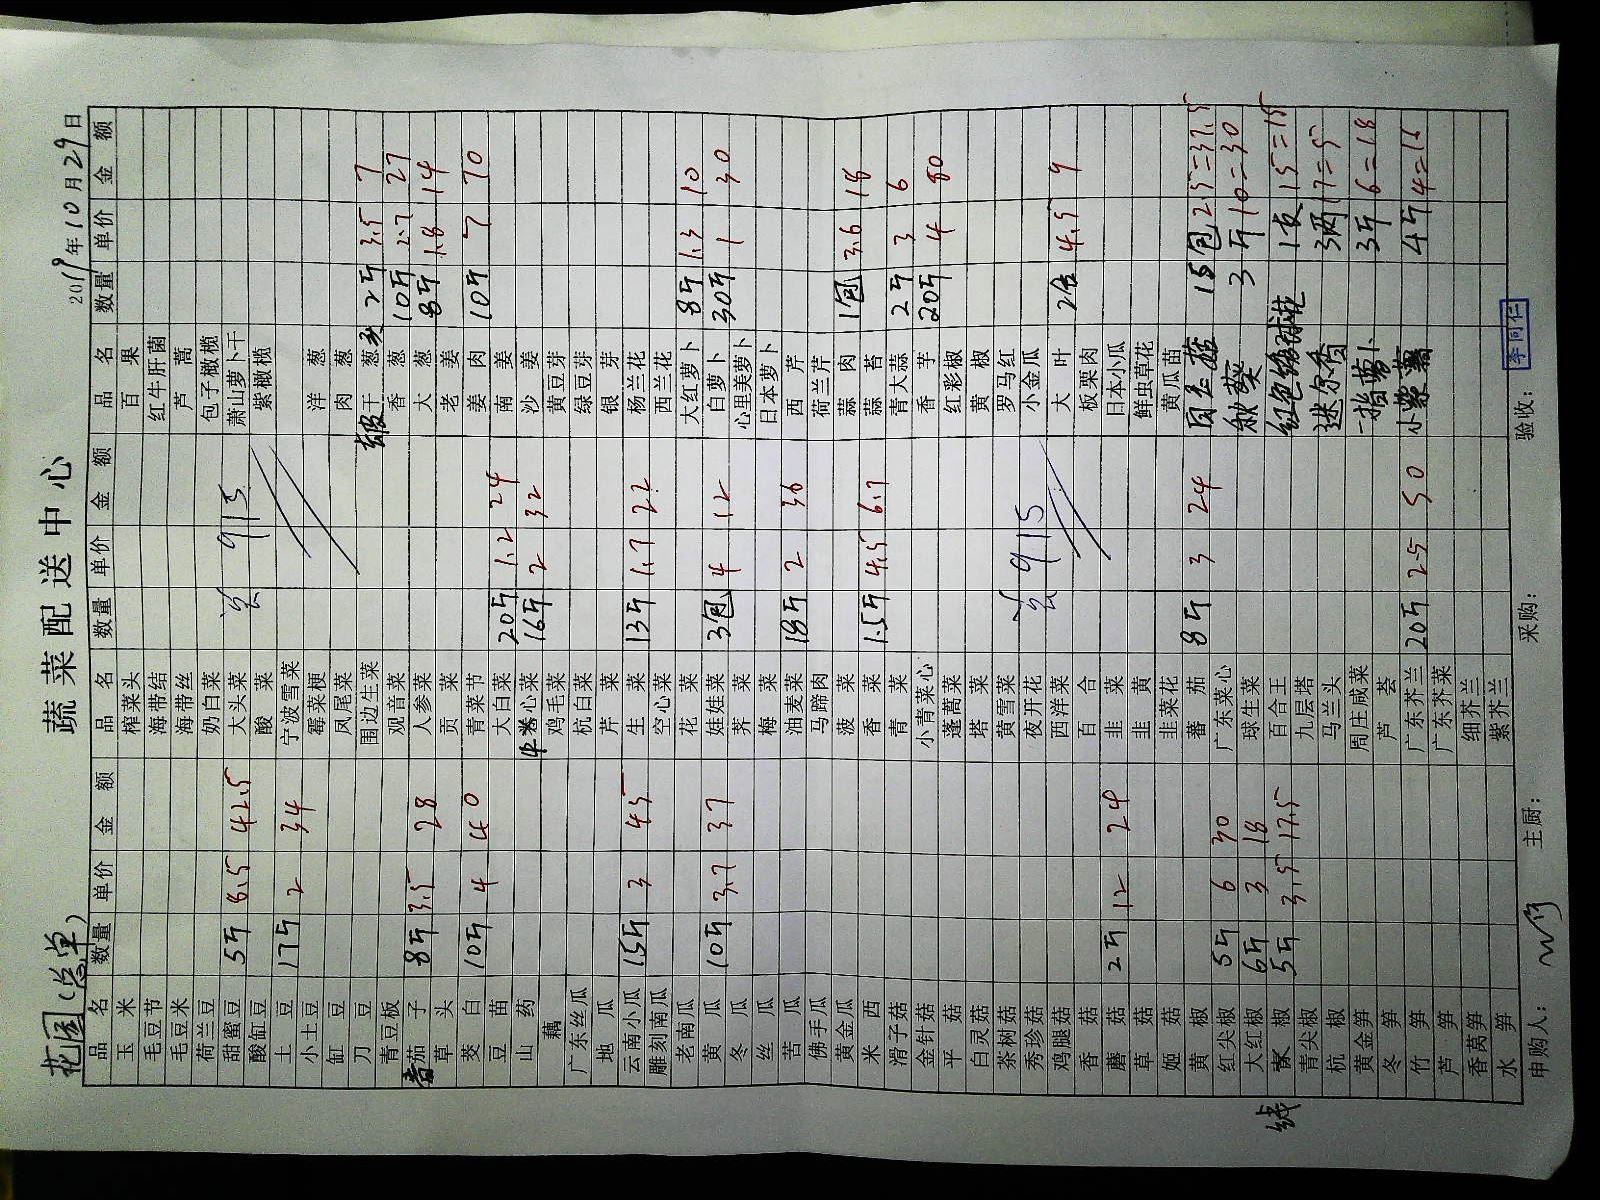 蔬菜配送中心
花园(总单) 2019年10月29日
品名 数量 单价 金额 品名 数量 单价 金额 品名 数量 单价 金额
玉米 榨菜头 百果
毛豆节 海带结 红牛肝菌
毛豆米 海带丝 芦蒿
荷兰豆 奶白菜 包子橄榄
甜蜜豆 5斤 8.5 42.5 大头菜 共 915 萧山萝卜干
酸缸豆 酸菜 紫橄榄
土豆 17斤 2 34 宁波雪菜
小土豆 霉菜梗 洋葱
缸豆 凤尾菜 肉葱
刀豆 围边生菜 干葱 2斤 3.5 7
青豆板 观音菜 香葱 10斤 2.7 27
番茄子 8斤 3.5 28 人参菜 大葱 8斤 1.8 14
草头 贡菜 老姜
茭白 10斤 4 40 青菜节 姜肉 10斤 7 70
豆苗 大白菜 20斤 1.2 24 南姜
山药 牛卷心菜 16斤 2 32 沙姜
藕 鸡毛菜 黄豆芽
广东丝瓜 杭白菜 绿豆芽
地瓜 芹菜 银芽
云南小瓜 15斤 3 45 生菜 13斤 1.7 22 杨兰花
雕刻南瓜 空心菜 西兰花
老南瓜 花菜 大红萝卜 8斤 1.3 10
黄瓜 10斤 3.7 37 娃娃菜 3包 4 12 白萝卜 30斤 1 30
冬瓜 荠菜 心里美萝卜
丝瓜 梅菜 日本萝卜
苦瓜 油麦菜 18斤 2 36 西芹
佛手瓜 马蹄肉 荷兰芹
黄金瓜 菠菜 蒜肉 1包 3.6 18
米西 香菜 1.5斤 4.5 6.7 蒜苔
滑子菇 青菜 青大蒜 2斤 3 6
金针菇 小青菜心 香芋 20斤 4 80
平菇 蓬蒿菜 红彩椒
白灵菇 塔菜 黄椒
茶树菇 黄雪菜 罗马红
秀珍菇 夜开花 共 915 小金瓜
鸡腿菇 西洋菜 大叶 2包 4.5 9
香菇 百合 板栗肉
蘑菇 2斤 12 24 韭菜 日本小瓜
草菇 韭黄 鲜虫草花
姬菇 韭菜花 黄瓜苗
黄椒 蕃茄 8斤 3 24 白玉菇 15包 2.5=37.5
红尖椒 5斤 6 30 广东菜心 秋葵 3斤 10=30
大红椒 6斤 3 18 球生菜 红色绣球花 1支 15=15
线椒 5斤 3.5 17.5 百合王 迷尔香 3两 17=5
青尖椒 九层塔 一指萝卜 3斤 6=18
杭椒 马兰头 4斤 4=16
黄金笋 周庄咸菜
冬笋 芦荟
竹笋 广东芥兰 20斤 2.5 50
芦笋 广东芥菜
香莴笋 细芥兰
水笋 紫芥兰
申购人: 主厨: 采购: 验收: 李同仁